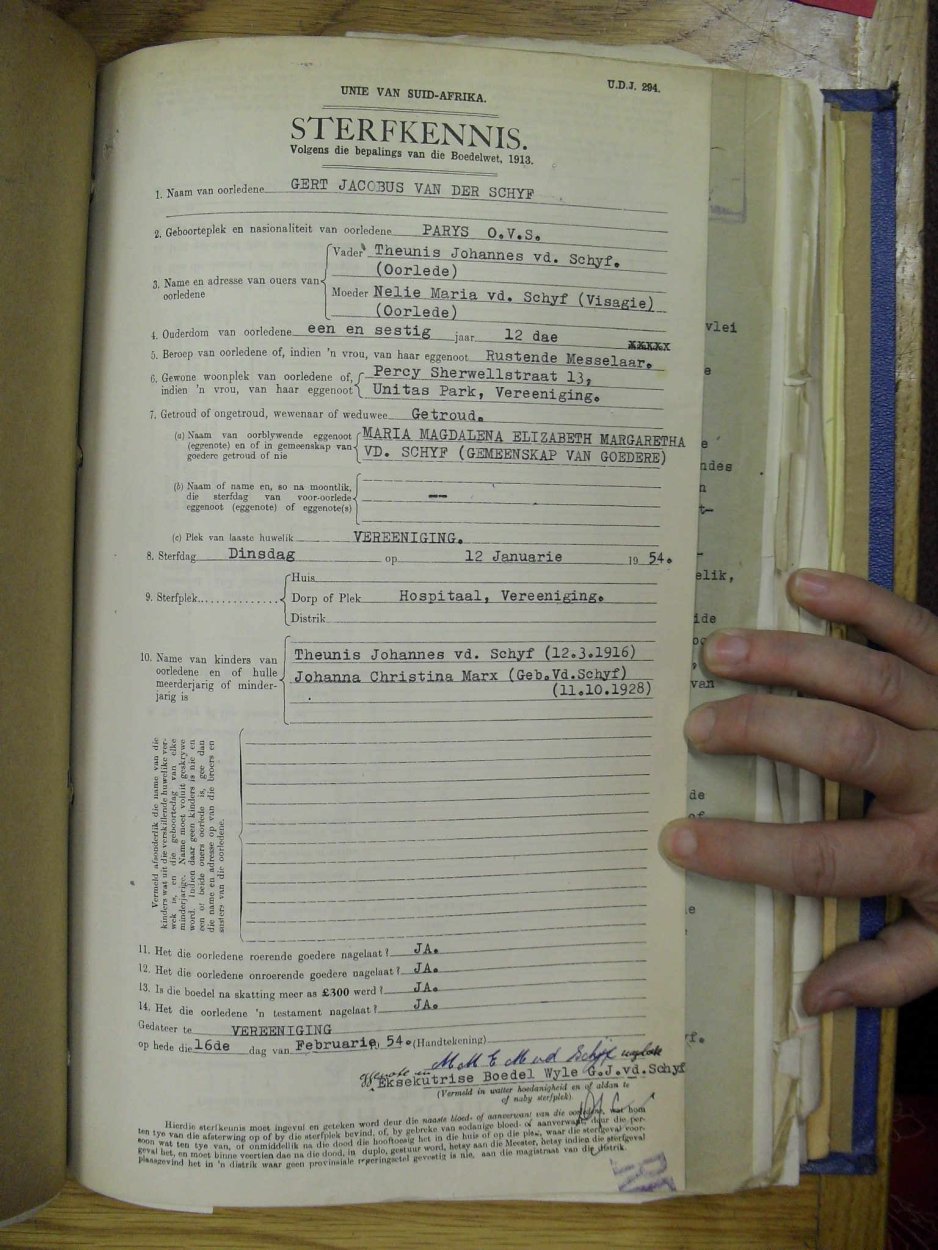 U.D.J. 294.
UNIE VAN SUID-AFRIKA.
STERFKENNIS.
Volgens die bepalings van die Boedelwet, 1913.
1. Naam van oorledene GERT JACOBUS VAN DER SCHYF
2. Geboorteplek en nasionaliteit van oorledene PARYS O.V.S.
3. Name en adresse van ouers van oorledene
Vader Theunis Johannes vd. Schyf.
(Oorlede)
Moeder Nelie Maria vd. Schyf (Visagie)
(Oorlede)
4. Ouderdom van oorledene een en sestig jaar 12 dae xxxxx
5. Beroep van oorledene of, indien 'n vrou, van haar eggenoot Rustende Messelaar.
6. Gewone woonplek van oorledene of, Percy Sherwellstraat 13,
indien 'n vrou, van haar eggenoot Unitas Park, Vereeniging.
7. Getroud of ongetroud, wewenaar of weduwee Getroud.
(a) Naam van oorblywende eggenoot MARIA MAGDALENA ELIZABETH MARGARETHA
(eggenote) en of in gemeenskap van
goedere getroud of nie VD. SCHYF (GEMEENSKAP VAN GOEDERE)
(b) Naam of name en, so na moontlik,
die sterfdag van voor-oorlede --
eggenoot (eggenote) of eggenote(s)
(c) Plek van laaste huwelik VEREENIGING.
8. Sterfdag Dinsdag op 12 Januarie 19 54.
9. Sterfplek
Huis
Dorp of Plek Hospitaal, Vereeniging.
Distrik
10. Name van kinders van
oorledene en of hulle
meerderjarig of minder-
jarig is
Theunis Johannes vd. Schyf (12.3.1916)
Johanna Christina Marx (Geb.Vd.Schyf)
(11.10.1928)
Vermeld afsonderlik die name van die
kinders wat uit die verskillende huwelike ver-
wek is, en die geboortedag van elke
minderjarige. Name moet voluit geskrywe
word. Indien daar geen kinders is nie en
een of beide ouers oorlede is, gee dan
die name en adresse op van die broers en
susters van die oorledene.
11. Het die oorledene roerende goedere nagelaat? JA.
12. Het die oorledene onroerende goedere nagelaat? JA.
13. Is die boedel na skatting meer as £300 werd? JA.
14. Het die oorledene 'n testament nagelaat? JA.
Gedateer te VEREENIGING
op hede die 16de dag van Februarie, 54. (Handtekening)
M M E M vd Schyf
Eksekutrise Boedel Wyle G.J.vd.Schyf
(Vermeld in watter hoedanigheid en of aldan te
of naby sterfplek).
Hierdie sterfkennis moet ingevul en geteken word deur die naaste bloed- of aanverwant van die oorledene, wat hom
ten tye van die afsterwing op of by die sterfplek bevind, of, by gebreke van sodanige bloed- of aanverwant, deur die per-
soon wat ten tye van, of onmiddellik na die dood die hooftoesig het in die huis of op die plek, waar die sterfgeval voor-
geval het, en moet binne veertien dae na die dood, in duplo, gestuur word, hetsy aan die Meester, hetsy indien die sterfgeval
plaasgevind het in 'n distrik waar geen provinsiale regeringsetel gevestig is nie, aan die magistraat van die distrik.